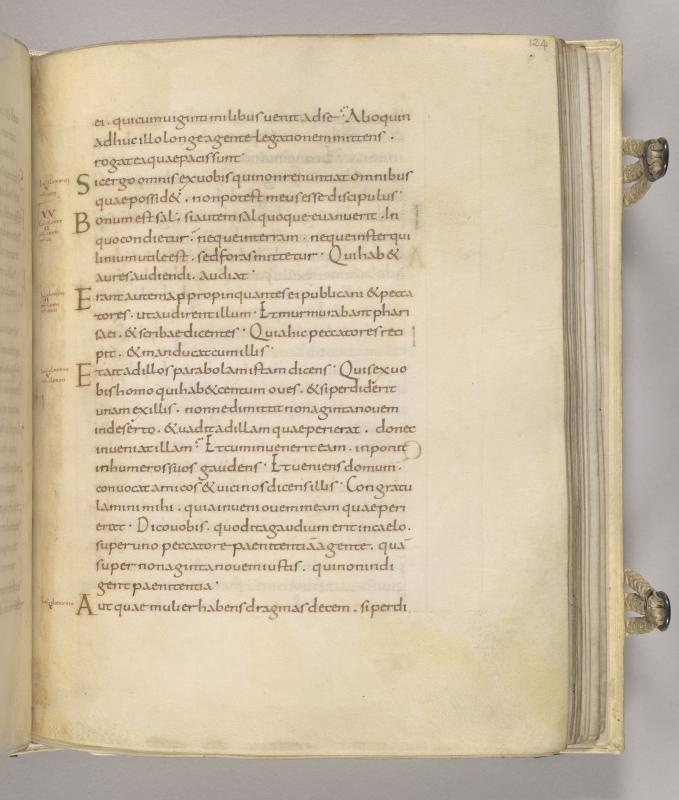 124
ei. quicumuiginti milibus uenit adse. Alioquin
adhuc illo longe agente legationem mittens.
rogat ea quae pacis sunt
Sic ergo omnis ex uobis qui non renuntiat omnibus
quae possid&. non potest meus esse discipulus.
XV
Bonum est sal. si autem sal quoque euanuerit. In
quo condietur. neque in terram. neque in sterqui
linium utile est. sed foras mittetur. Qui hab&
aures audiendi. audiat.
Erant autem appropinquantes ei publicani & pecca
tores. ut audirent illum. Et murmurabant phari
saei. & scribae dicentes. Quia hic peccatores reci
pit. & manducat cum illis.
Et ait ad illos parabolam istam dicens. Quis ex uo
bis homo qui hab& centum oues. & si perdiderit
unam ex illis. nonne dimittit nonaginta nouem
in deserto. & uadit ad illam quae perierat. donec
inueniat illam. Et cum inuenerit eam. inponit
in humeros suos gaudens. Et ueniens domum.
conuocat amicos & uicinos dicens illis. Congratu
lamini mihi. quia inueni ouem meam quae peri
erat. Dico uobis. quod ita gaudium erit in caelo.
super uno peccatore paenitentiā agente. quā
super nonaginta nouem iustis. qui non indi
gent paenitentia.
Aut quae mulier habens dragmas decem. si perdi